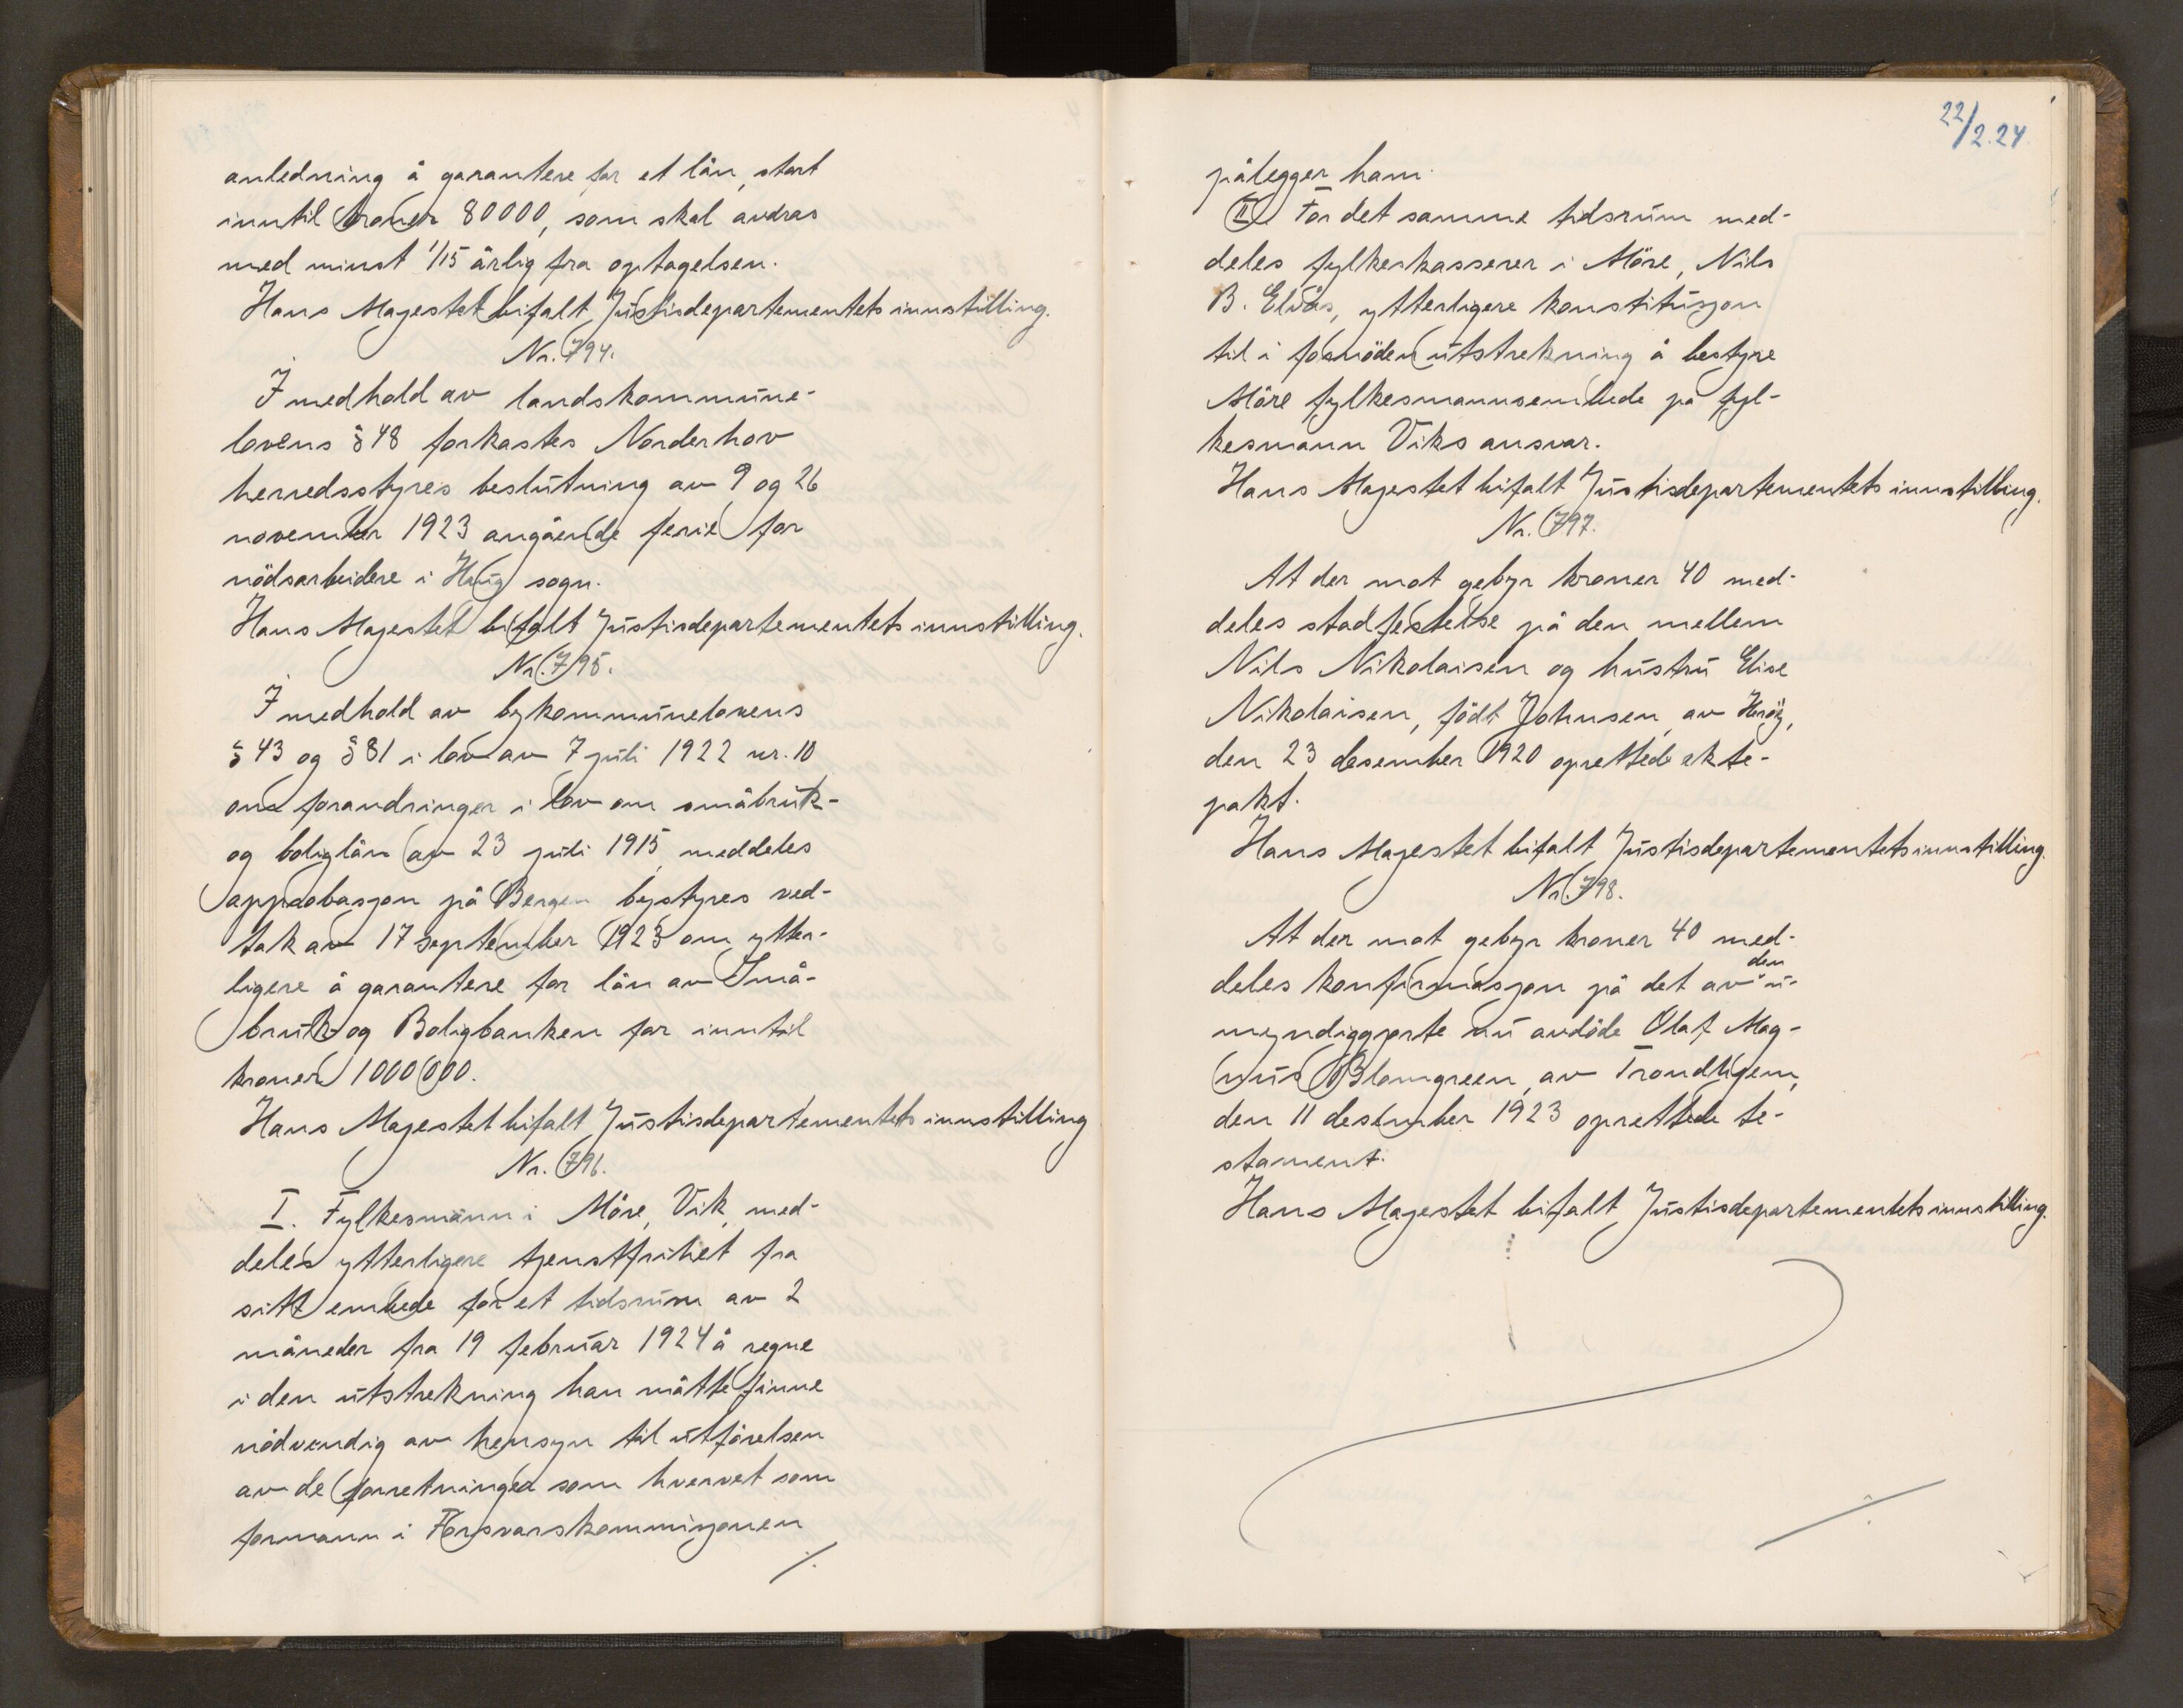 anledning å garantere for et lån, stort
inntil kroner 80000, som skal avdras
med minst 1/15 årlig fra optagelsen.
Hans Majestet bifalt Justisdepartementets innstilling.
Nr. 794.
I medhold av landskommune-
lovens § 48 forkastes Norderhov
herredsstyres beslutning av 9 og 26
november 1923 angående ferie for
nödsarbeidere i Haug sogn.
Hans Majestet bifalt Justisdepartementets innstilling.
Nr. 795.
I medhold av bykommunelovens
§ 43 og § 81 i lov av 7 juli 1922 nr. 10
om forandringer i lov om småbruk-
og boliglån av 23 juli 1915 meddeles
approbasjon på Bergen bystyres ved-
tak av 17 september 1923 om ytter-
ligere å garantere for lån av Små-
bruk- og Boligbanken for inntil
kroner 1000000.
Hans Majestet bifalt Justisdepartementets innstilling
Nr. 796.
I. Fylkesmann i Möre, Vik, med-
deles ytterligere tjenstfrihet fra
sitt embede for et tidsrum av 2
måneder fra 19 februar 1924 å regne
i den utstrekning han måtte finne
nödvendig av hensyn til utförelsen
av de forretninger som hvervet som
formann i Forsvarskommisjonen
./.
22/2.24
pålegger ham.
II For det samme tidsrum med-
deles fylkeskasserer i Möre, Nils
B. Elvås, ytterligere konstitusjon
til i fornöden utstrekning å bestyre
Möre fylkesmannsembede på fyl-
kesmann Viks ansvar.
Hans Majestet bifalt Justisdepartementets innstilling.
Nr. 797.
At der mot gebyr kroner 40 med-
deles stadfestelse på den mellem
Nils Nikolaisen og hustru Elise
Nikolaisen, födt Johnsen, av Heröy,
den 23 desember 1920 oprettede ekte-
pakt.
Hans Majestet bifalt Justisdepartementets innstilling.
Nr. 798.
At der mot gebyr kroner 40 med-
deles konfirmasjon på det av den u-
myndiggjorte nu avdöde Olaf Mag-
nus Blomgreen, av Trondhjem,
den 11 desember 1923 oprettede te-
stament.
Hans Majestet bifalt Justisdepartementets innstilling.
./.